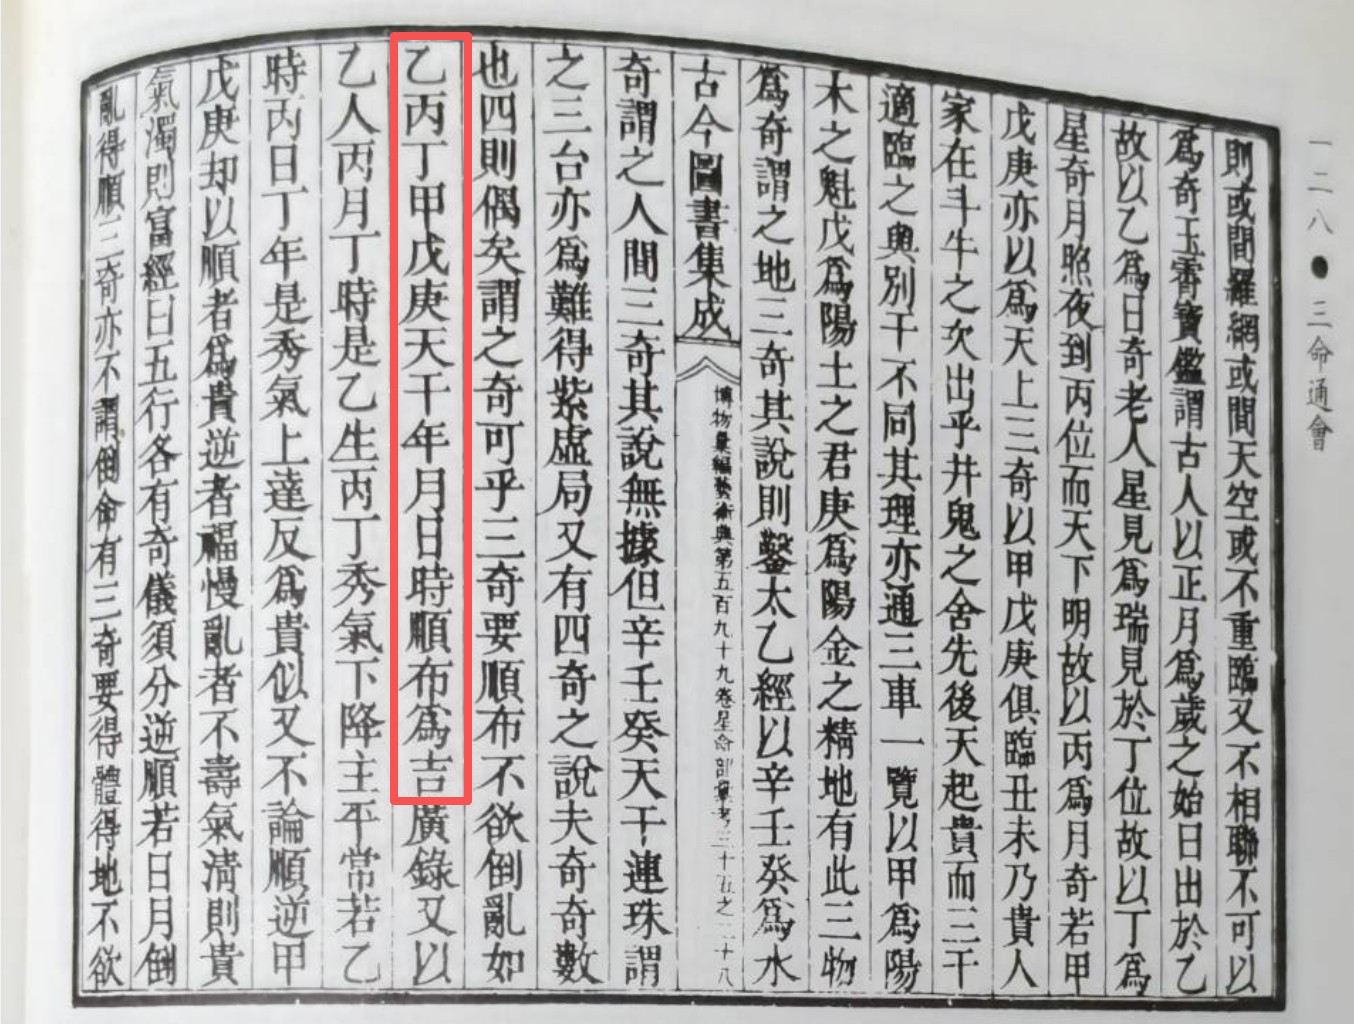 一二八●三命通會
則或間羅網或間天空或不重臨又不相聯不可以
爲奇玉霄寶鑑謂古人以正月爲歲之始日出於乙
故以乙爲日奇老人星見爲瑞見於丁位故以丁爲
星奇月照夜到丙位而天下明故以丙爲月奇若甲
戊庚亦以爲天上三奇以甲戊庚俱臨丑未乃貴人
家在斗牛之次出乎井鬼之舍先後天起貴而三干
適臨之與別干不同其理亦通三車一覽以甲爲陽
木之魁戊爲陽土之君庚爲陽金之精地有此三物
爲奇謂之地三奇其說則鑿太乙經以辛壬癸爲水
古今圖書集成
博物彙編藝術典第五百九十九卷星命部彙考三十五之二十八
奇謂之人間三奇其說無據但辛壬癸天干連珠謂
之三台亦爲難得紫虛局又有四奇之說夫奇奇數
也四則偶矣謂之奇可乎三奇要順布不欲倒亂如
乙丙丁甲戊庚天干年月日時順布爲吉廣錄又以
乙人丙月丁時是乙生丙丁秀氣下降主平常若乙
時丙日丁年是秀氣上達反爲貴似又不論順逆甲
戊庚却以順者爲貴逆者福慢亂者不壽氣清則貴
氣濁則富經曰五行各有奇儀須分逆順若日月倒
亂得順三奇亦不謂倒命有三奇要得體得地不欲